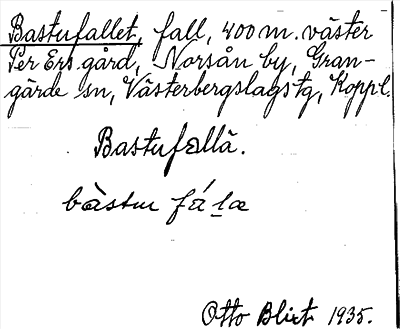 Bastufallet, fall, 400 m. väster
Per Ers gård, Norsån by, Gran-
gärde sn, Västerbergslags tg, Koppl.
Bastufallä.
bàstu fála
Otto Blixt 1935.